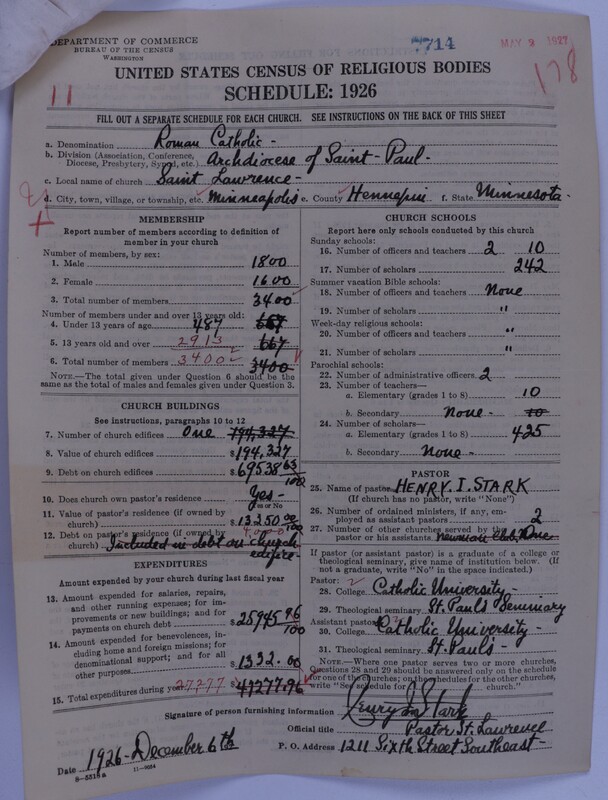 DEPARTMENT OF COMMERCE
BUREAU OF THE CENSUS
WASHINGTON
714
MAY 2 1927
178
11
UNITED STATES CENSUS OF RELIGIOUS BODIES
SCHEDULE: 1926
FILL OUT A SEPARATE SCHEDULE FOR EACH CHURCH. SEE INSTRUCTIONS ON THE BACK OF THIS SHEET
a. Denomination Roman Catholic -
b. Division (Association, Conference, Diocese, Presbytery, Synod, etc.) Archdiocese of Saint-Paul -
c. Local name of church Saint Lawrence -
d. City, town, village, or township, etc. Minneapolis e. County Hennepin f. State Minnesota -
MEMBERSHIP
Report number of members according to definition of
member in your church
Number of members, by sex:
1. Male 1800
2. Female 1600
3. Total number of members 3400
Number of members under and over 13 years old:
4. Under 13 years of age 487
5. 13 years old and over 2913 667
6. Total number of members 3400 3400
NOTE.—The total given under Question 6 should be the
same as the total of males and females given under Question 3.
CHURCH BUILDINGS
See instructions, paragraphs 10 to 12
7. Number of church edifices One 194,327
8. Value of church edifices $194,327
9. Debt on church edifices $69538 63/100
10. Does church own pastor's residence Yes -
Yes or No
11. Value of pastor's residence (if owned by
church) $13250 00/100
12. Debt on pastor's residence (if owned by
church) Included in debt on church
edifice -
EXPENDITURES
Amount expended by your church during last fiscal year
13. Amount expended for salaries, repairs,
and other running expenses; for im-
provements or new buildings; and for
payments on church debt $25945 96/100
14. Amount expended for benevolences, in-
cluding home and foreign missions; for
denominational support; and for all
other purposes $1332.00
15. Total expenditures during year 27277 $47277.96
CHURCH SCHOOLS
Report here only schools conducted by this church
Sunday schools:
16. Number of officers and teachers 2 10
17. Number of scholars 242
Summer vacation Bible schools:
18. Number of officers and teachers None
19. Number of scholars "
Week-day religious schools:
20. Number of officers and teachers "
21. Number of scholars "
Parochial schools:
22. Number of administrative officers 2
23. Number of teachers—
a. Elementary (grades 1 to 8) 10
b. Secondary None - 10
24. Number of scholars—
a. Elementary (grades 1 to 8) 425
b. Secondary None -
PASTOR
25. Name of pastor HENRY. I. STARK
(If church has no pastor, write "None")
26. Number of ordained ministers, if any, em-
ployed as assistant pastors 2
27. Number of other churches served by the
pastor or his assistants. Newman Club, One
If pastor (or assistant pastor) is a graduate of a college or
theological seminary, give name of institution below. (If
not a graduate, write "No" in the space indicated.)
Pastor:
28. College Catholic University -
29. Theological seminary St. Paul's Seminary
Assistant pastor:
30. College Catholic University -
31. Theological seminary St. Paul's -
NOTE.—Where one pastor serves two or more churches,
Questions 28 and 29 should be answered only on the schedule
for one of the churches; on the schedules for the other churches,
write "See schedule for church."
Signature of person furnishing information Henry I. Stark
Official title Pastor St. Lawrence
P. O. Address 1211 Sixth Street Southeast -
Date 1926 - December 6th
8-5518a 11-9064